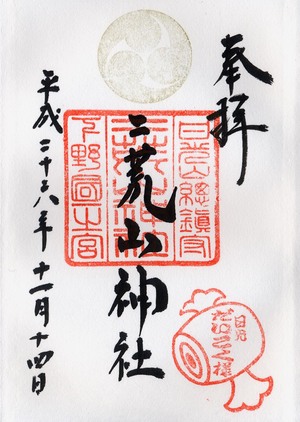 奉拝
日光山總鎮守
二荒山神社
二荒山神社
下野國一之宮
平成二十六年十一月十四日
日光
だいこく様